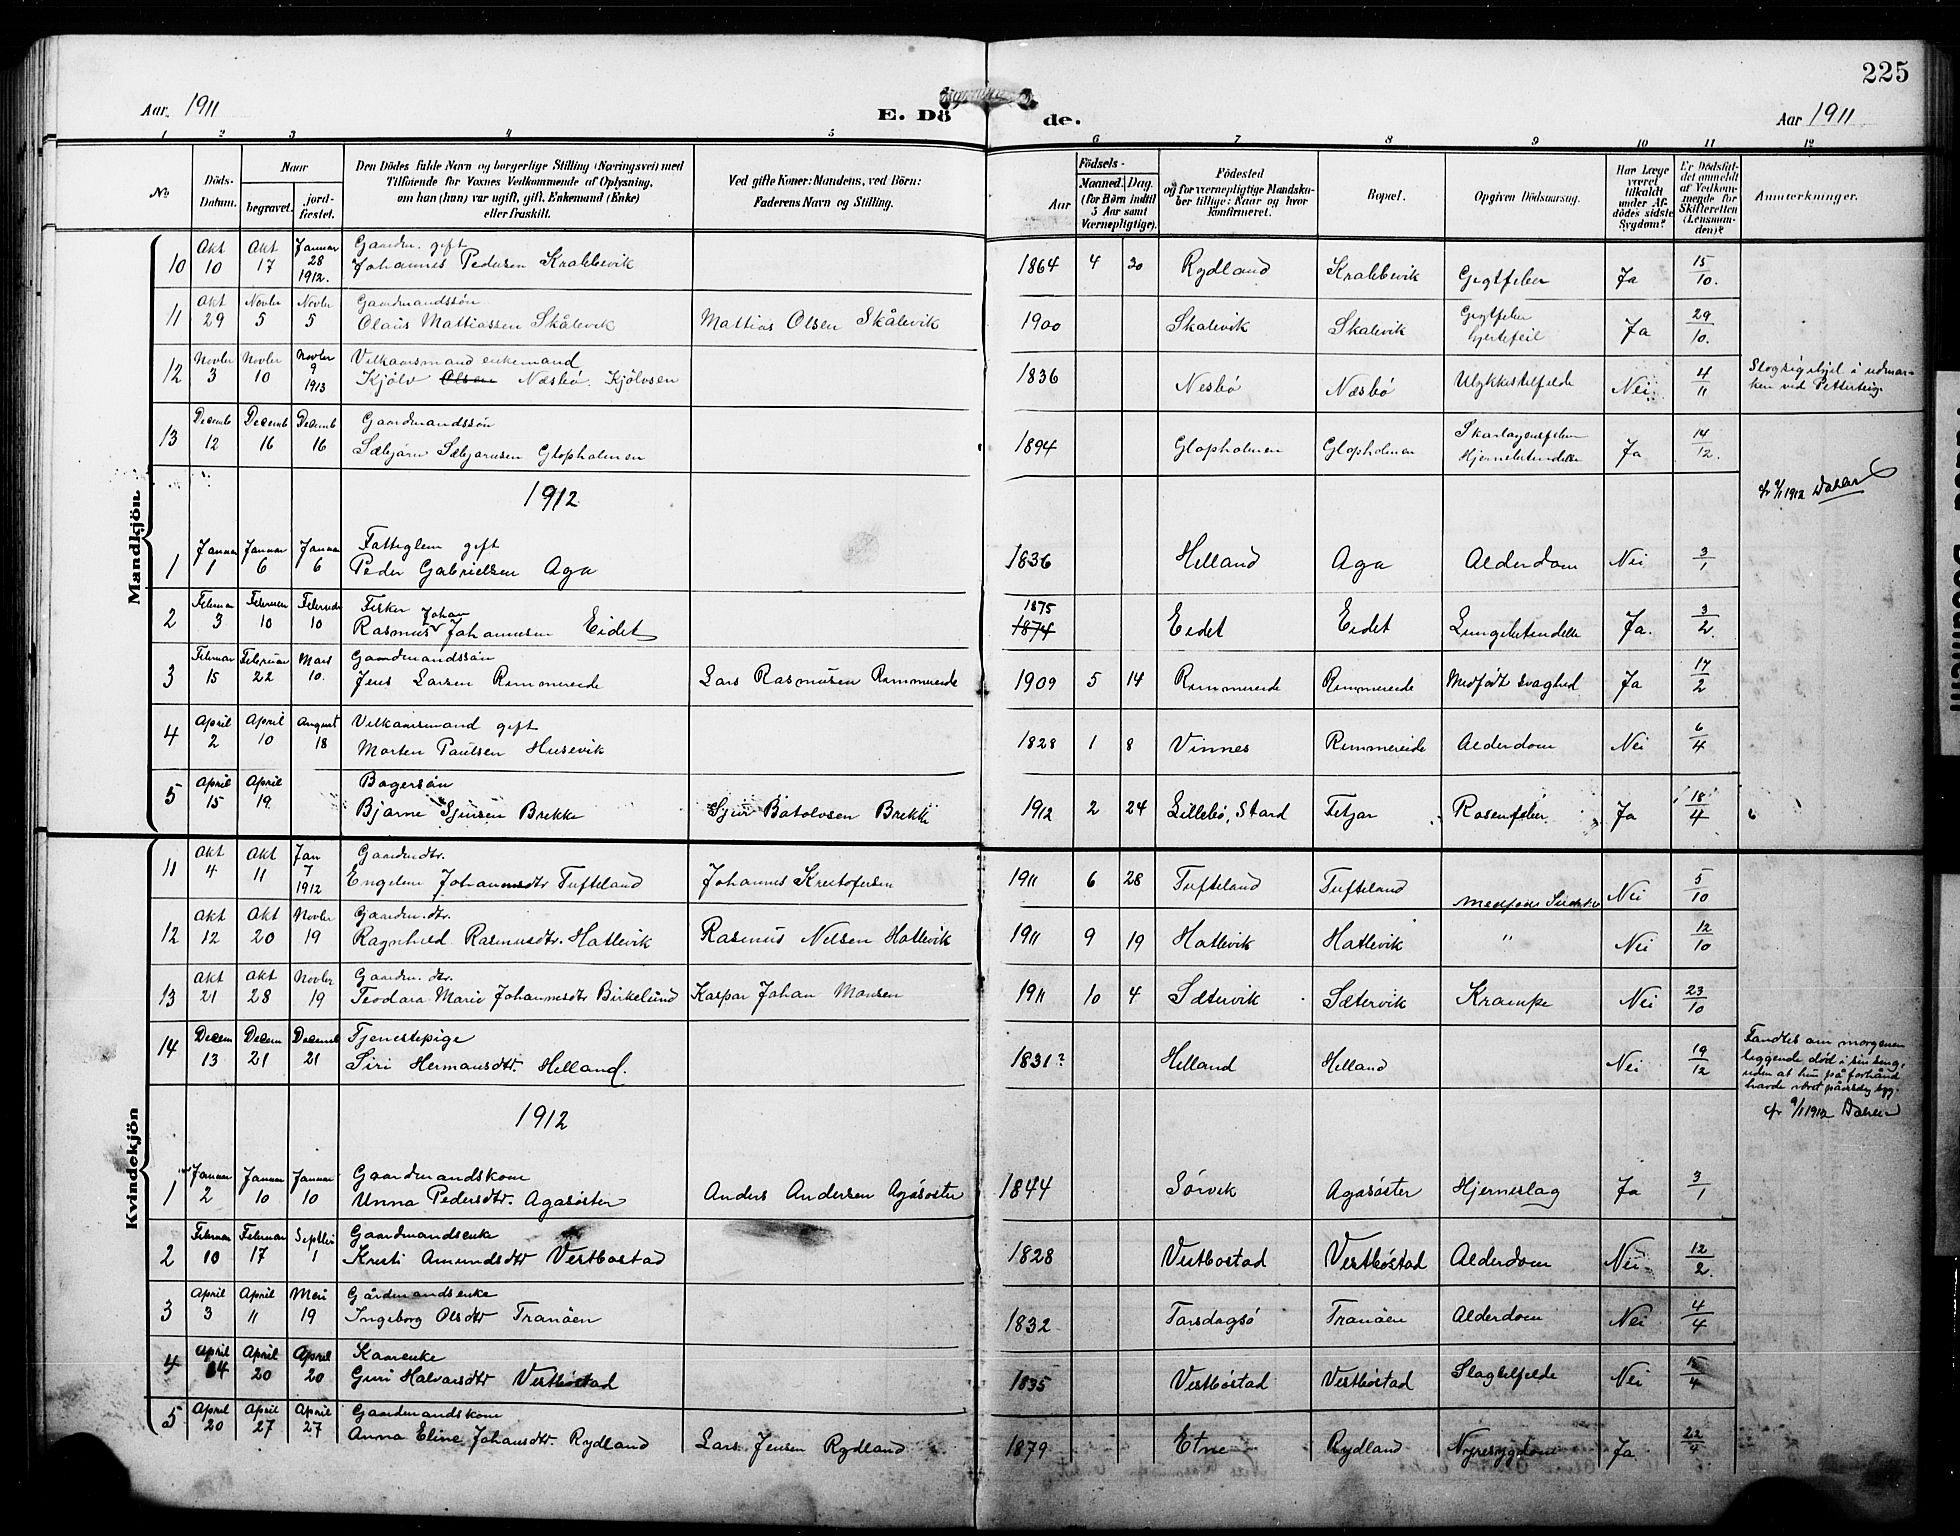 225
Aar 1911
E. Dö de.
Aar 1911
1 2 3 4 5 6 7 8 9 10 11 12
No
Döds-Datum.
Naar
begravet.
jord-fæstet.
Den Dödes fulde Navn og borgerlige Stilling (Næringsvei) med
Tilföiende for Voxnes Vedkommende af Oplysning,
om han (hun) var ugift, gift, Enkemand (Enke)
eller fraskilt.
Ved gifte Koner: Mandens, ved Börn:
Faderens Navn og Stilling.
Födsels-
Aar
Maaned. Dag.
(for Börn indtil
5 Aar samt
Værnepligtige).
Födested
og for værnepligtige Mandska-
ber tillige: Naar og hvor
konfirmeret.
Bopæl.
Opgiven Dödsaarsag.
Har Læge
været
tilkaldt
under Af-
dödes sidste
Sygdom?
Er Dödsfal-
det anmeldt
af Vedkom-
mende for
Skifteretten
(Lensman-
den)?
Anmærkninger.
Mandkjön
Okt Okt Januar Gaardm. gift
10 10 17 28 1912. Johannes Pedersen Krabbevik 1864 4 20 Rydland Krabbevik Gigtfeber Ja 15/10.
Okt Novbr Novbr Gaardmandssön
11 29 5 5 Olaus Mattiassen Skålevik Mattias Olsen Skålevik 1900 Skalevik Skalevik Gigtfeber Hjertefeil Ja 29/10.
Novbr Novbr Novbr Vilkaarsmand enkemand
12 3 10 9 1913 Kjölv Olsen Næsbö. Kjölvsen 1836 Nesbö Næsbö Ulykkestilfelde Nei 4/11
Slog sig ihjel i udmar-
ken ved Petterteig.
Decemb Decemb Decemb Gaardmandssön
13 12 16 16 Sæbjörn Sæbjörnsen Glopholmen 1894 Glopholmen Glopholmen Skarlagensfeber Hjernebetendelse Ja 14/12.
1912
1912
Januar Januar Januar Fattiglem gift
1 1 6 6 Peder Gabrielsen Aga 1836 Helland Aga Alderdom Nei 3/1
Februar Februar Februar Fisker
2 3 10 10 Rasmus Johan Johannesen Eidet 1875 1874 Eidet Eidet Lungebetendelse Ja. 3/2.
Februar Februar Mars Gaardmandssön
3 15 22 10. Jens Larsen Rimmereide Lars Rasmusen Rimmereide 1909 5 14 Rimmereide Rimmereide Medfödt svaghed Ja 17/2
April April August Vilkaarsmand gift
4 2 10 18 Morten Paulsen Husevik 1828 1 8 Vinnes Rimmereide Alderdom Nei 6/4
April April Bagersön
5 15 19 Bjarne Sjursen Brekke Sjur Batolvsen Brekke 1912 2 24 Lillebö, Stord Fitjar Rosenfeber. Ja 18/4
Kvindekjön
Okt Okt Jan Gaardmdtr.
11 4 11 7 1912 Johannesdtr Tufteland Johannes Kristofersen 1911 6 28 Tufteland Tufteland Nei 5/10
Okt Okt Novbr Gaardm. dtr.
12 12 20 19 Ragnhild Rasmusdtr. Hatlevik Rasmus Nilsen Hatlevik 1911 9 19 Hatlevik Hatlevik " Nei 12/10
Okt Okt Novbr Gaardm. dtr.
13 21 28 19 Teodora Marie Johannesdtr Birkelund Kaspar Johan Monsen 1911 10 4 Sætervik Sætervik Krampe Nei 23/10
Decem Decem Decemb Tjenestepige
14 13 21 21 Siri Hermansdtr. Helland. 1831? Helland Helland Nei 19/12
Fandtes om morgenen
liggende död i sin seng,
uden at hun på forhånd
havde været
9/1 1912
1912
Januar Januar Januar Gaardmandskone
1 2 10 10 Unna Pedersdtr. Agasöster Anders Andersen Agasöster 1844 Sörvik Agasöster Hjerneslag Ja 3/1
Februar Februar Septbr Gaardmandsenke
2 10 17 1 Kristi Amundsdtr Vestbostad 1828 Vestbostad Vestböstad Alderdom Nei 12/2.
April April Mai Gårdmandsenke
3 3 11 19 Ingeborg Olsdtr Tranöen 1832 Tranöen Alderdom Nei 4/4
April April April Kaarenke
4 14 20 20 Guri Halvorsdtr Vestböstad 1835 Vestböstad Vestböstad Slagtilfelde Nei 15/4
April April April Gaardmandskone
5 20 27 27 Anna Eline Johansdtr. Rydland Lars Jensen Rydland 1879 Etne Rydland Nyresygdom Ja 22/4